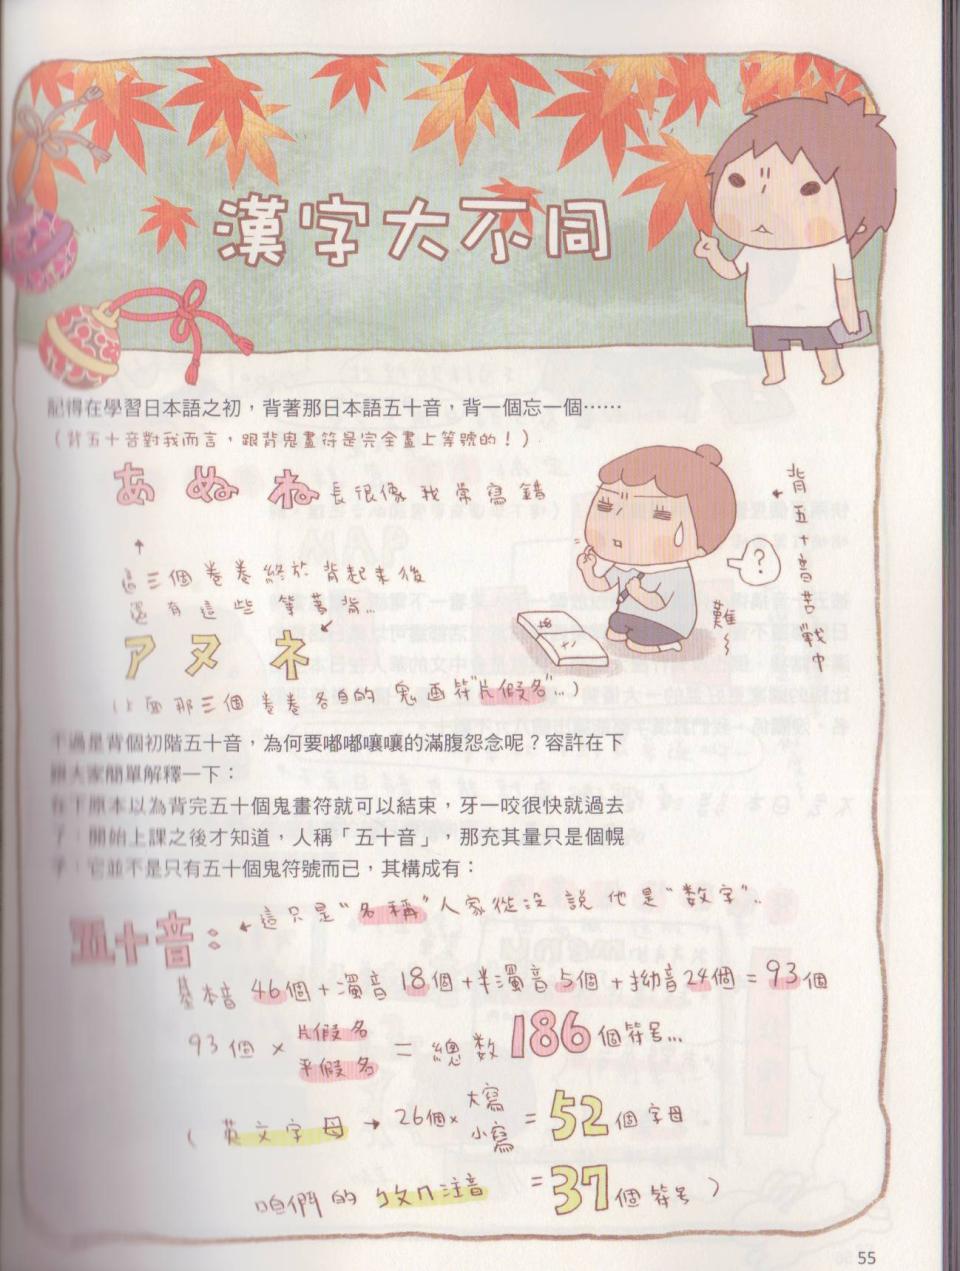 漢字大不同
記得在學習日本語之初，背著那日本語五十音，背一個忘一個……
（背五十音對我而言，跟背鬼畫符是完全畫上等號的！）
あ ぬ ね 長很像我常寫錯
背五十音苦戰中
?
難
這三個卷卷終於背起來後
還有這些 等著背…
ア ヌ ネ
那三個卷卷各自的鬼画符"片假名"…）
不過是背個初階五十音，為何要嘟嘟嚷嚷的滿腹怨念呢？容許在下
跟大家簡單解釋一下：
在下原本以為背完五十個鬼畫符就可以結束，牙一咬很快就過去
了，開始上課之後才知道，人稱「五十音」，那充其量只是個幌
子，它並不是只有五十個鬼符號而已，其構成有：
五十音：
這只是"名稱"人家從沒說他是"数字"..
基本音 46個＋濁音 18個＋半濁音 5個＋拗音 24個＝93個
93個 × 片假名 平假名 ＝ 總数 186個符号...
（英文字母 → 26個× 大寫 小寫 ＝ 52個字母
咱們的ㄅㄆㄇ注音 ＝37個符号）
55